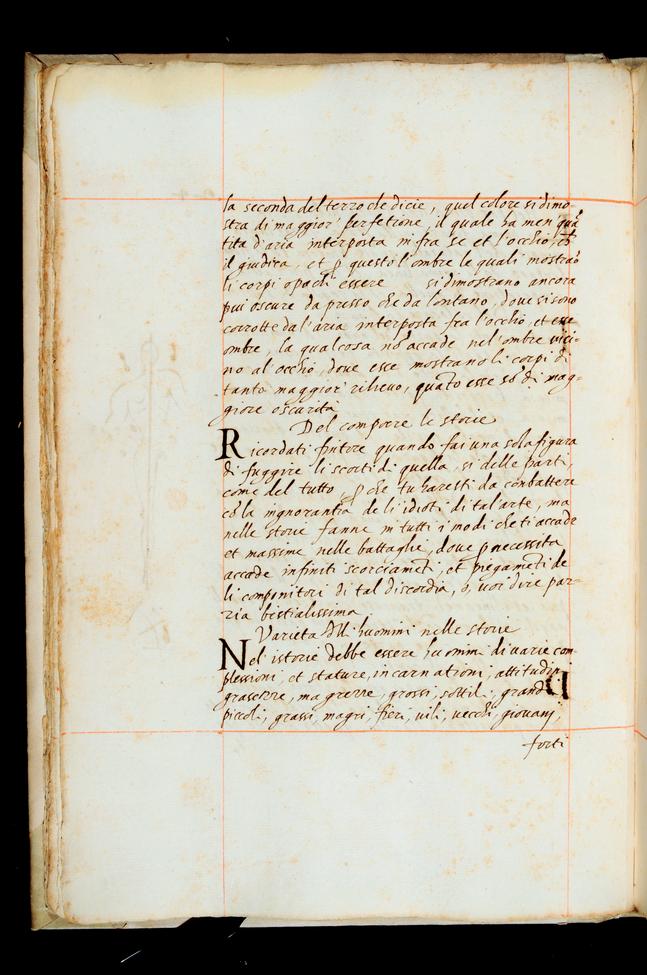 la seconda del terzo che dicie, quel colore si dimo-
stra di maggior' perfetione, il quale ha men' quā
tita d'aria interposta in fra se et l'occhio, chè
il giudica, et ꝑ questo l'ombre le quali mostraō
li corpi opachi essere si dimostrano ancora
piu oscure da presso che da lontano, dove si sono
corrotte da l'aria interposta fra l'occhio, et esse
ombre, la qual cosa nō accade nel' ombre vici-
no al occhio, dove esse mostrano li corpi di
tanto maggior' rilievo, quāto esse sō di mag-
giore oscurità
Del comporre le storie
Ricordati pittore quando fai una sola figura
di fuggire li scorti di quella, si delle parti,
come del tutto ꝑ che tu haresti da conbattere
cō la ingnorantia de li idioti di tal'arte, ma
nelle storie fanne in tutti i modi che ti accade
et massime nelle battaglie, dove ꝑ necessita
accade infiniti scorciamēti, et piegamēti de
li componitori di tal discordia, o, voi dire paz-
zia bestialissima
Varieta dll' huomini nelle storie
Nel istorie debbe essere huomini di varie com
plessioni, et stature, incarnationi, attitudini
grassezze, magrezze, grossi, sottili, grandi
piccoli, grassi, magri, fieri, vili, vecchi, giovani,
forti